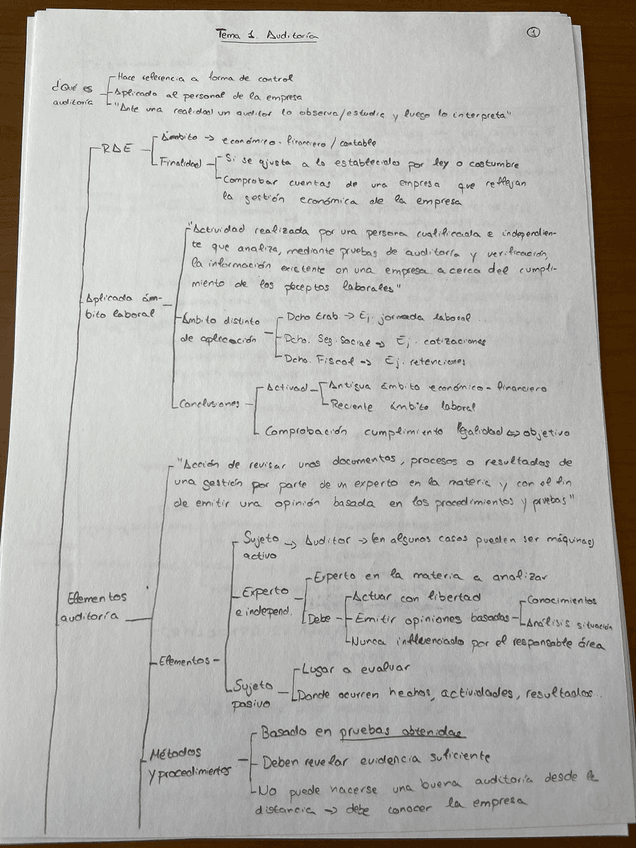 Tema 1. Auditoría
1
¿Qué es auditoría
Hace referencia a forma de control
Aplicado al personal de la empresa
"Ante una realidad un auditor lo observa/estudia y luego lo interpreta"
RAE
Ámbito → económico-financiero / contable
Finalidad
Si se ajusta a lo establecido por ley o costumbre
Comprobar cuentas de una empresa que reflejan
la gestión económica de la empresa
Aplicada ám-
bito laboral
"Actividad realizada por una persona cualificada e independien-
te que analiza, mediante pruebas de auditoría y verificación,
la información existente en una empresa acerca del cumpli-
miento de los preceptos laborales"
Ámbito distinto
de aplicación
Dcho trab → Ej. jornada laboral
Dcho. Seg. Social → Ej. cotizaciones
Dcho. Fiscal → Ej. retenciones
Conclusiones
Activad
Antigua ámbito económico-financiero
Reciente ámbito laboral
Comprobación cumplimiento legalidad ⇔ objetivo
Elementos
auditoría
"Acción de revisar unos documentos, procesos o resultados de
una gestión por parte de un experto en la materia y con el fin
de emitir una opinión basada en los procedimientos y pruebas"
Elementos
Sujeto
activo
→ Auditor → (en algunos casos pueden ser máquinas)
Experto
e independ.
Experto en la materia a analizar
Debe
Actuar con libertad
Emitir opiniones basadas
Conocimientos
Análisis situación
Nunca influenciado por el responsable área
Sujeto
pasivo
Lugar a evaluar
Donde ocurren hechos, actividades, resultados..
Métodos
y procedimientos
Basado en pruebas obtenidas
Deben revelar evidencia suficiente
No puede hacerse una buena auditoría desde la
distancia → debe conocer la empresa